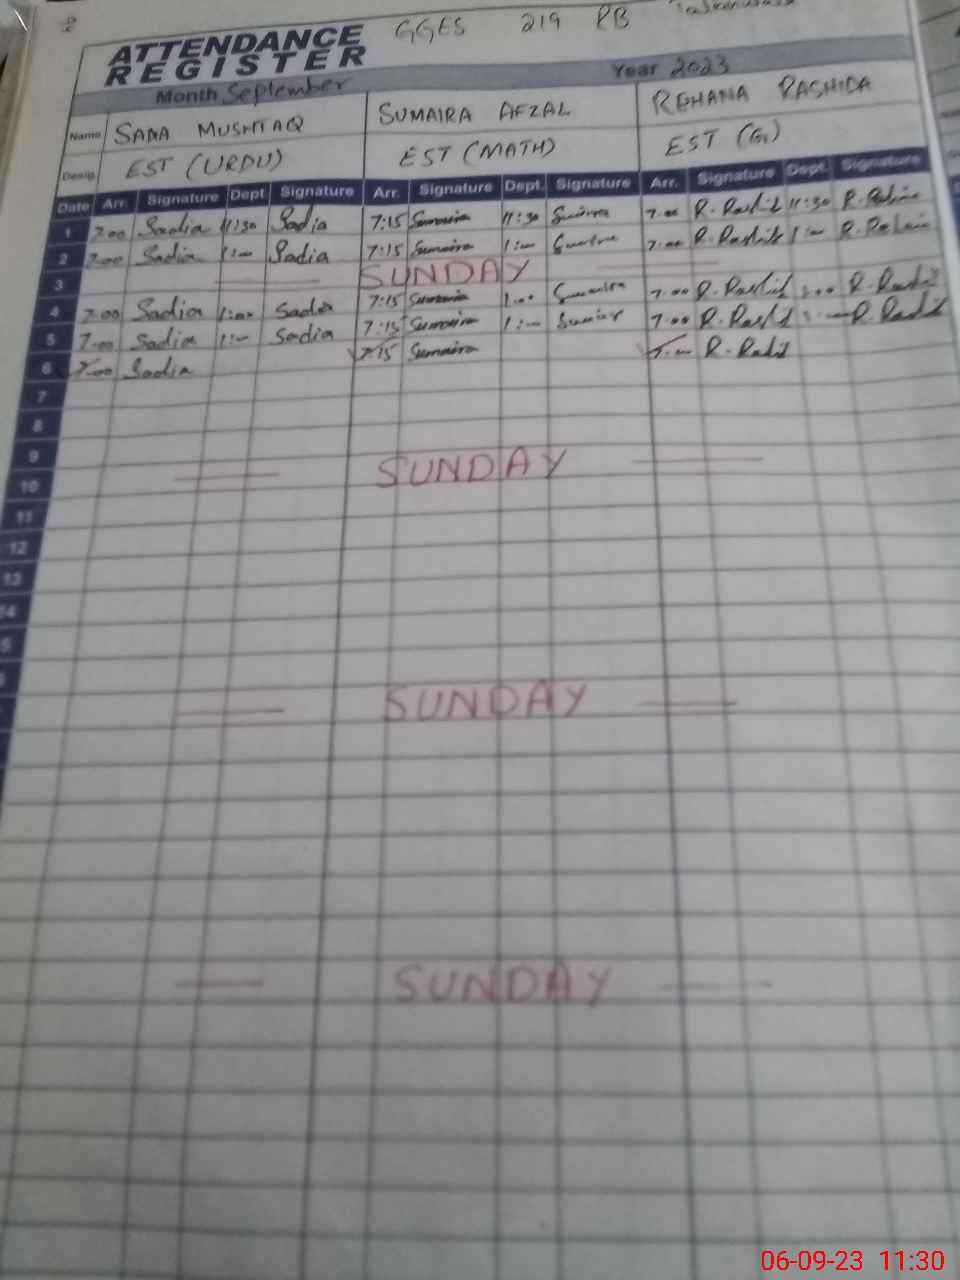 GGES 219 RB
ATTENDANCE
REGISTER
Month September Year 2023
Name SADIA MUSHTAQ SUMAIRA AFZAL REHANA RASHIDA
Desig. EST (URDU) EST (MATH) EST (G)
Date Arr. Signature Dept. Signature Arr. Signature Dept. Signature Arr. Signature Dept. Signature
1 7:00 Sadia 11:30 Sadia 7:15 Sumaira 11:30 Sumaira 7:00 R. Rashid 11:30
2 7:00 Sadia 1:00 Sadia 7:15 Sumaira 1:00 7:00 R. Rashid 1:00
3 SUNDAY
4 7:00 Sadia 1:00 Sadia 7:15 Sumaira 1:00 Sumaira 7:00 R. Rashid
5 7:00 Sadia 1:00 Sadia 7:15 Sumaira 1:00 7:00 R. Rashid
6 7:00 Sadia 7:15 Sumaira
7
8
9
10 SUNDAY
11
12
13
14
SUNDAY
SUNDAY
06-09-23 11:30